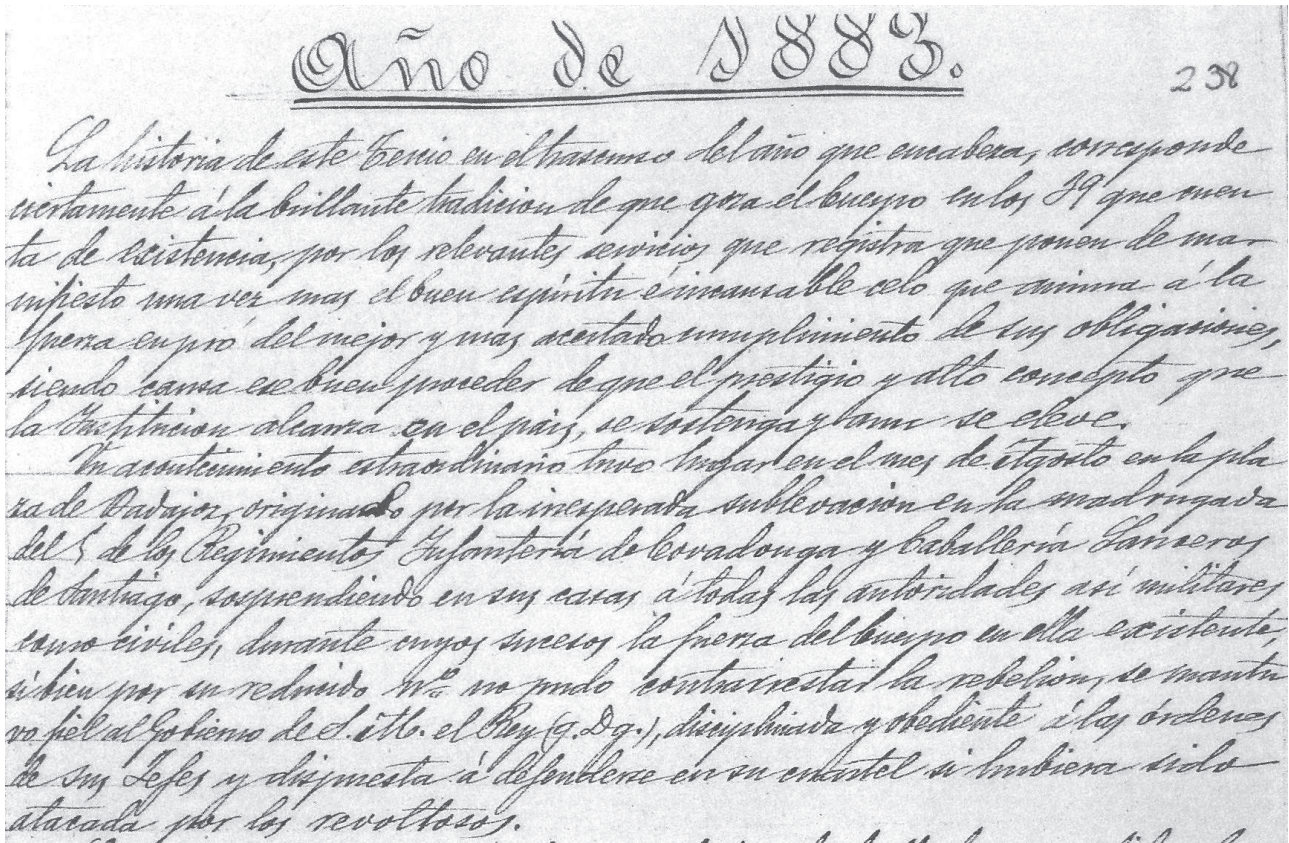 Año de 1883.
238
La historia de este Tercio en el trascurso del año que encabeza, corresponde
ciertamente á la brillante tradicion de que goza el Cuerpo en los 39 que cuen
ta de existencia, por los relevantes servicios que registra que ponen de ma-
nifiesto una vez mas el buen espíritu é incansable celo que anima á la
fuerza en pró del mejor y mas acertado cumplimiento de sus obligaciones,
siendo causa ese buen proceder de que el prestigio y alto concepto que
la Institucion alcanza en el pais, se sostenga y aun se eleve.
Un acontecimiento estraordinario tuvo lugar en el mes de Agosto en la pla
za de Badajoz, originado por la inesperada sublevacion en la madrugada
del 5 de los Regimientos Infantería de Covadonga y Caballería Lanceros
de Santiago, sosprendiendo en sus casas á todas las autoridades así militares
como civiles, durante cuyos sucesos la fuerza del Cuerpo en ella existente,
si bien por su reducido nº no pudo contrarrestar la rebelion, se mantu
vo fiel al Gobierno de S. M. el Rey (q. D g.), disciplinada y obediente á las órdenes
de sus Jefes y dispuesta á defenderse en su cuartel si hubiera sido
atacada por los revoltosos.